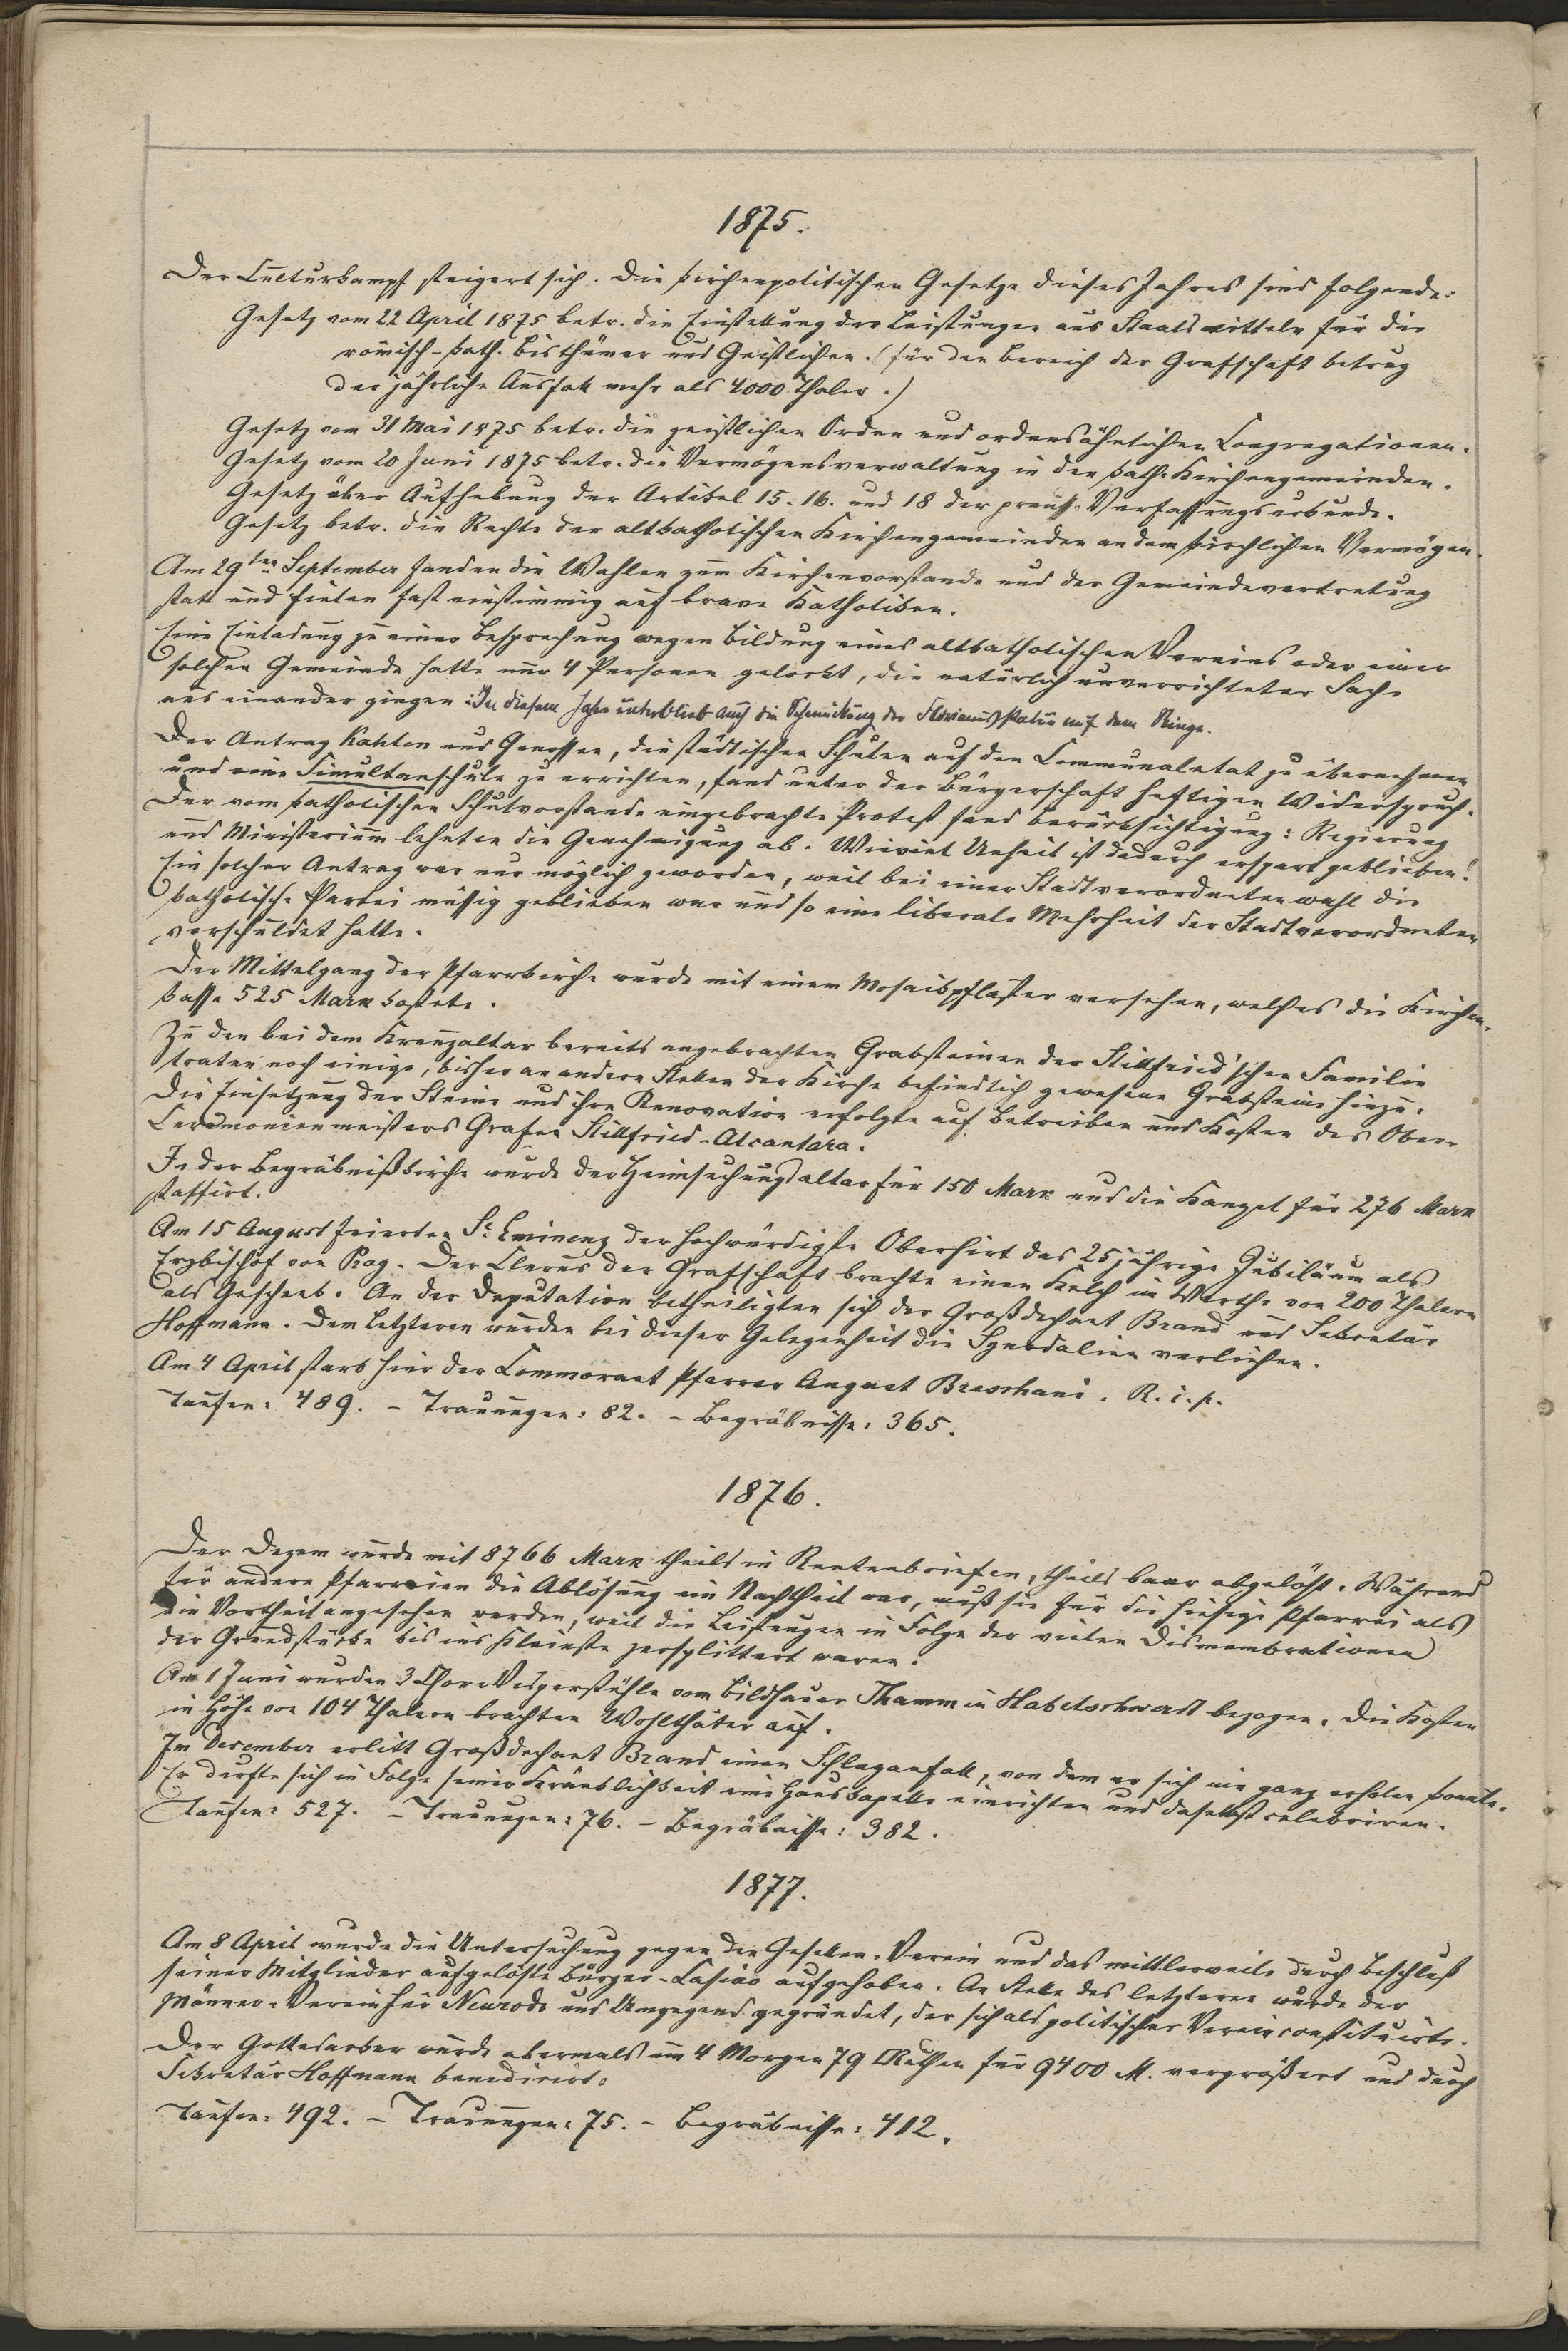 1875.
Der Culturkampf steigert sich. Die kirchenpolitischen Gesetze dieses Jahres sind folgende:
Gesetz vom 22 April 1875 betr. die Einstellung der Leistungen aus Staatsmitteln für die
römisch-kath. Bisthümer und Geistlichen. (für den Bereich der Grafschaft betrug
der jährliche Ausfall mehr als 4000 Thaler.)
Gesetz vom 31 Mai 1875 betr. die geistlichen Orden und ordensähnlichen Congregationen.
Gesetz vom 20 Juni 1875 betr. die Vermögensverwaltung in den kath. Kirchengemeinden.
Gesetz über Aufhebung der Artikel 15. 16. und 18 der preuss. Verfassungsurkunde.
Gesetz betr. die Rechte der altkatholischen Kirchengemeinden an dem kirchlichen Vermögen.
Am 29ten September fanden die Wahlen zum Kirchenvorstande und der Gemeindevertretung
statt und fielen fast einstimmig auf brave Katholiken.
Eine Einladung zu einer Besprechung wegen Bildung eines altkatholischen Vereins oder einer
solchen Gemeinde hatte nur 4 Personen gelockt, die natürlich unverrichteter Sache
aus einander gingen. In diesem Jahre unterblieb auch die Schmückung der Florianusstatue auf dem Ringe.
Der Antrag Kahlen und Genossen, die städtischen Schulen auf den Communaletat zu übernehmen
und eine Simultanschule zu errichten, fand unter der Bürgerschaft heftigen Widerspruch.
Der vom katholischen Schulvorstande eingebrachte Protest fand Berücksichtigung: Regierung
und Ministerium lehnten die Genehmigung ab. Wieviel Unheil ist dadurch erspart geblieben!
Ein solcher Antrag war nur möglich geworden, weil bei einer Stadtverordnetenwahl die
katholische Partei müssig geblieben war und so eine liberale Mehrheit der Stadtverordneten
verschuldet hatte.
Der Mittelgang der Pfarrkirche wurde mit einem Mosaikpflaster versehen, welches die Kirchen-
kasse 525 Mark kostete.
Zu den bei dem Kreuzaltar bereits angebrachten Grabsteinen der Stillfried'schen Familie
traten noch einige, bisher an andern Stellen der Kirche befindlich gewesene Grabsteine hinzu.
Die Einsetzung der Steine und ihre Renovation erfolgte auf Betreiben und Kosten des Ober-
Ceremonienmeisters Grafen Stillfried-Alcantara.
In der Begräbnißkirche wurde der Heimsuchungsaltar für 150 Mark und die Kanzel für 276 Mark
staffirt.
Am 15 August feierten Se Eminenz der hochwürdigste Oberhirt das 25jährige Jubiläum als
Erzbischof von Prag. Der Clerus der Grafschaft brachte einen Kelch im Werthe von 200 Thalern
als Geschenk. An der Deputation betheiligten sich der Großdechant Brand und Sekretär
Hoffmann. Dem Letzteren wurden bei dieser Gelegenheit die Synodalien verliehen.
Am 4 April starb hier der Commorant Pfarrer August Breschani. R. i. p.
Taufen: 489. – Trauungen: 82. – Begräbnisse: 365.
1876.
Der Dezem wurde mit 8766 Mark theils in Rentenbriefen, theils baar abgelöst. Während
für andere Pfarreien die Ablösung ein Nachtheil war, muß sie für die hiesige Pfarrei als
ein Vortheil angesehen werden, weil die Leistungen in Folge der vielen Dismembrationen
der Grundstücke bis ins Kleinste zersplittert waren.
Am 1 Juni wurden 3 Chor-Vesperstühle vom Bildhauer Thamm in Habelschwerdt bezogen. Die Kosten
in Höhe von 104 Thalern brachten Wohlthäter auf.
Im December erlitt Großdechant Brand einen Schlaganfall, von dem er sich nie ganz erholen konnte.
Er durfte sich in Folge seiner Kränklichkeit eine Hauskapelle einrichten und daselbst celebriren.
Taufen: 527. – Trauungen: 76. – Begräbnisse: 382.
1877.
Am 8 April wurde die Untersuchung gegen den Gesellen-Verein und das mittlerweile durch Beschluß
seiner Mitglieder aufgelöste Bürger-Casino aufgehoben. An Stelle des letzteren wurde der
Männer-Verein für Neurode und Umgegend gegründet, der sich als politischer Verein constituirte.
Der Gottesacker wurde abermals um 4 Morgen 79 □Ruthen für 9400 M. vergrößert und durch
Sekretär Hoffmann benedicirt.
Taufen: 492. – Trauungen: 75. – Begräbnisse: 412.